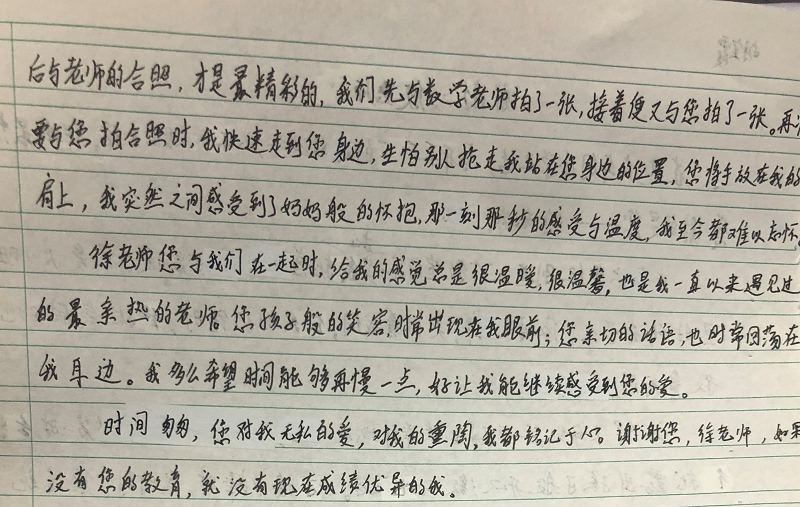 后与老师的合照，才是最精彩的，我们先与数学老师拍了一张，接着便又与您拍了一张。再
要与您拍合照时，我快速走到您身边，生怕别人抢走我站在您身边的位置，您将手放在我的
肩上，我突然之间感受到了妈妈般的怀抱，那一刻那秒的感受与温度，我至今都难以忘怀。
徐老师您与我们在一起时，给我的感觉总是很温暖，很温馨，也是我一直以来遇见过
的最亲热的老师您孩子般的笑容，时常出现在我眼前；您亲切的话语，也时常回荡在
我耳边。我多么希望时间能够再慢一点，好让我能继续感受到您的爱。
时间匆匆，您对我无私的爱，对我的熏陶，我都铭记于心。谢谢您，徐老师，如果
没有您的教育，就没有现在成绩优异的我。